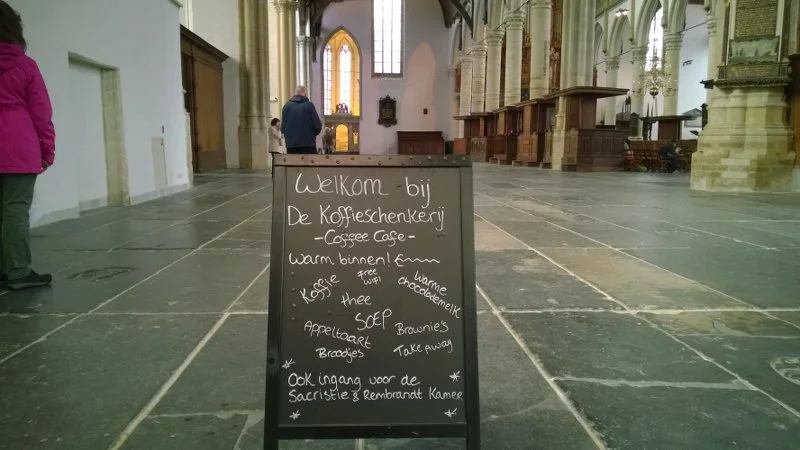 Welkom bij
De Koffieschenkerij
-Coffee Cafe-
Warm binnen!
Koffie
Free
wifi
Warme
chocolademelk
thee
SOEP
Appeltaart
Brownie's
Broodjes
Take Away
Ook ingang voor de
Sacristie & Rembrandt Kamer